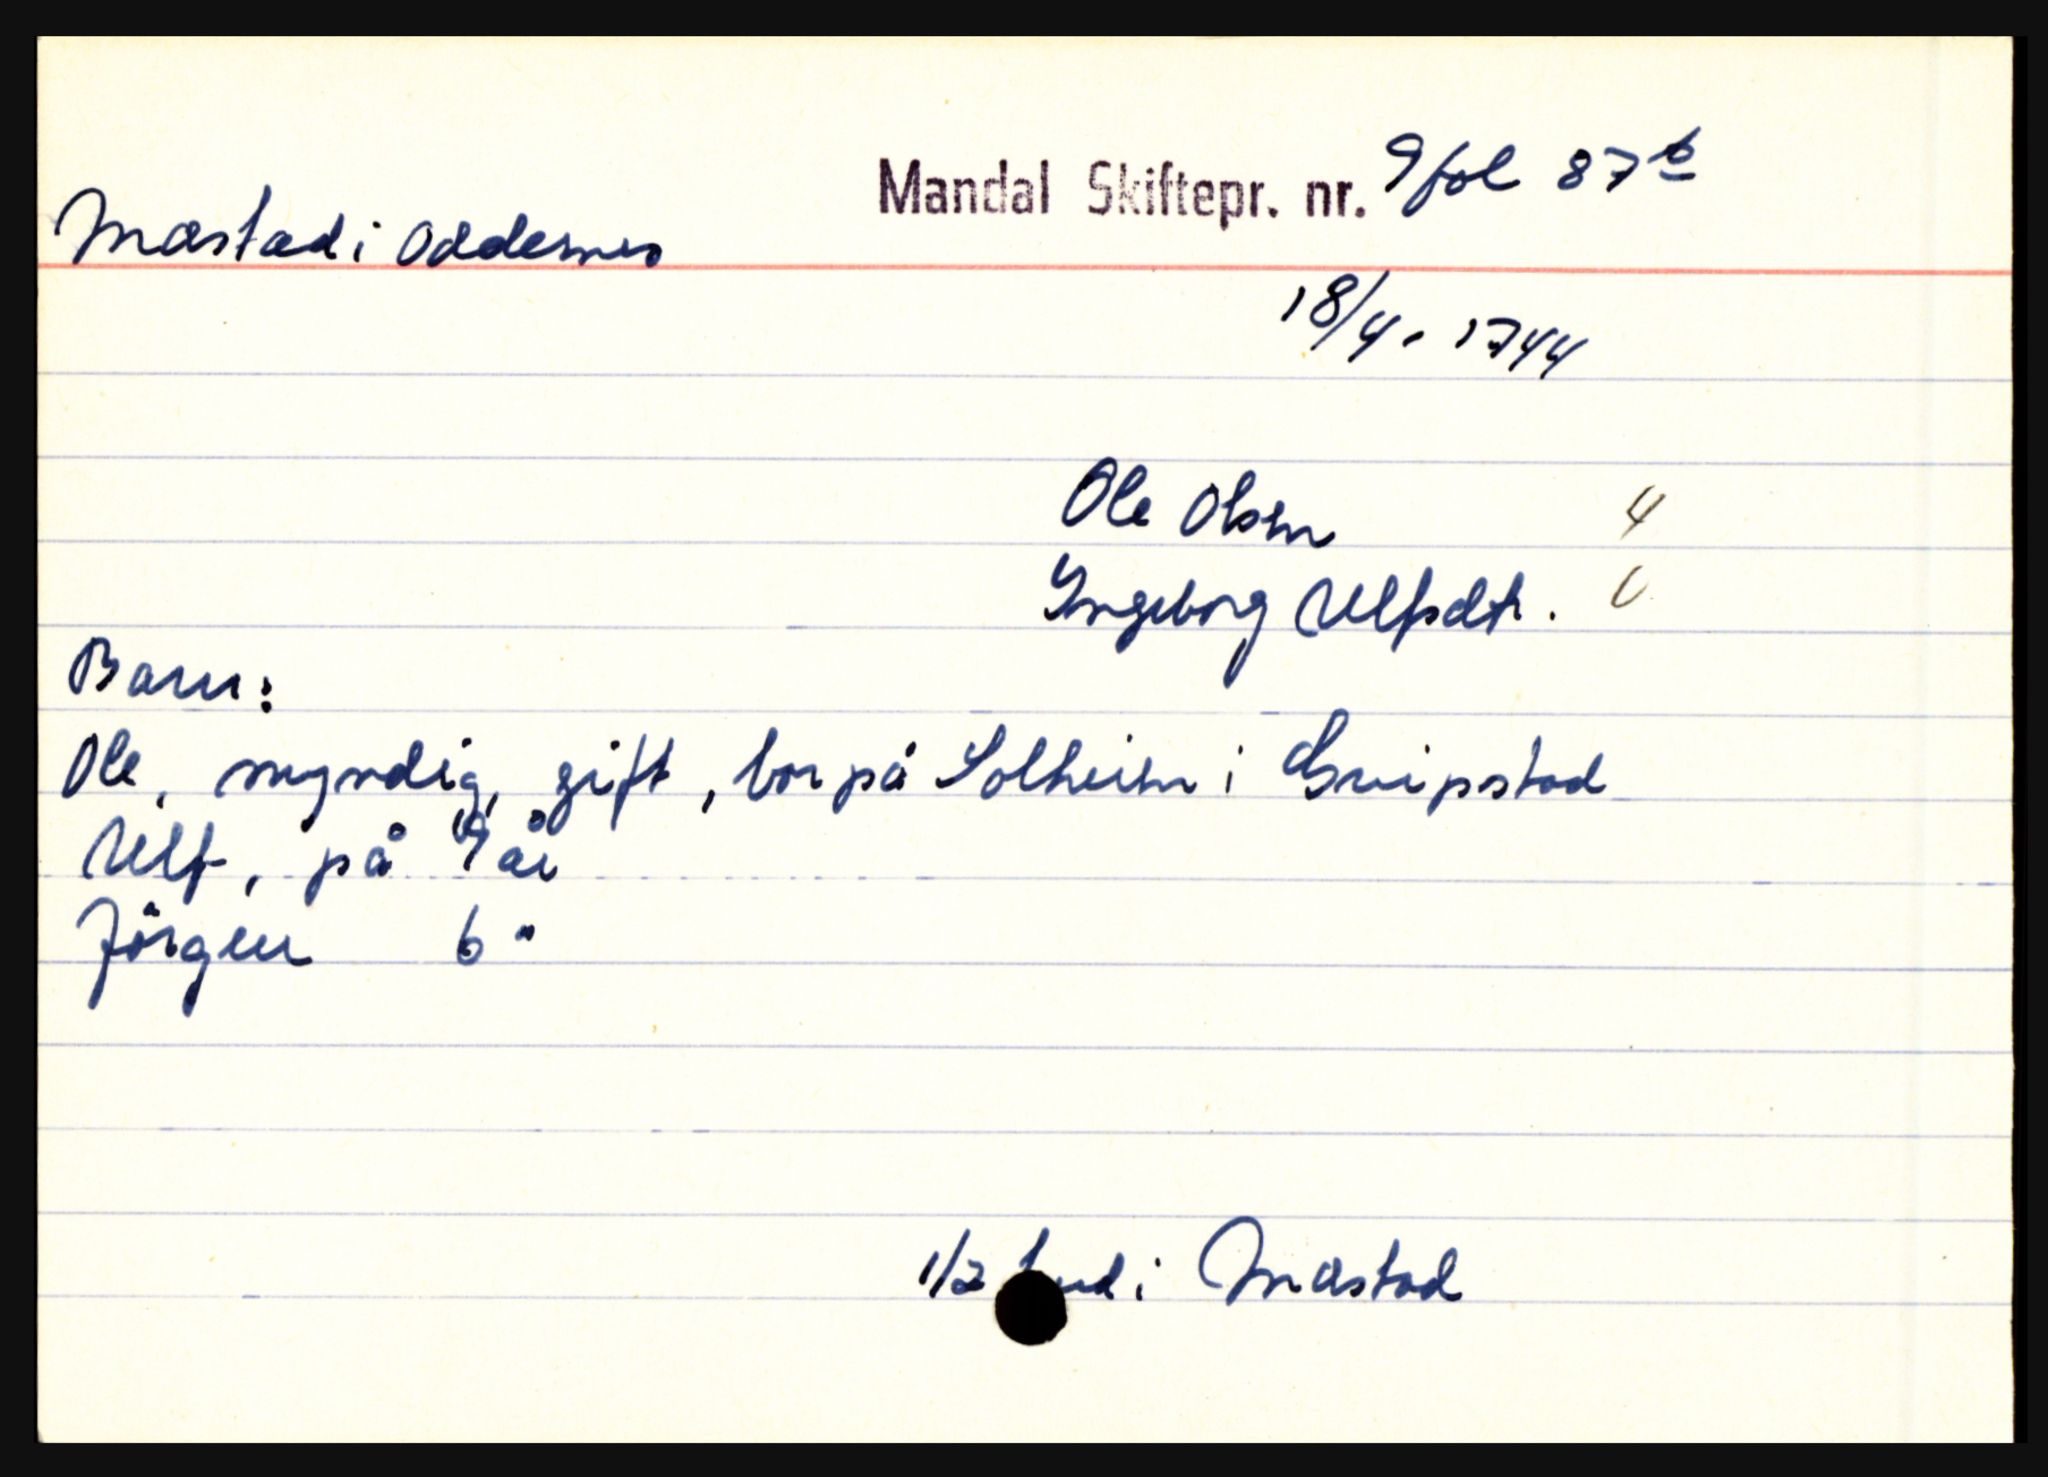 Mandal Skiftepr. nr. 9 fol 87 b
Mæstad i Oddernes
18/4. 1744
Ole Olsen 4
Ingeborg Ulfsdtr. U
Barn:
Ole, myndig, gift, bor på Solheim i Greipstad
Ulf, på 9 år
Jörgen 6 "
1/2 hud i Mæstad